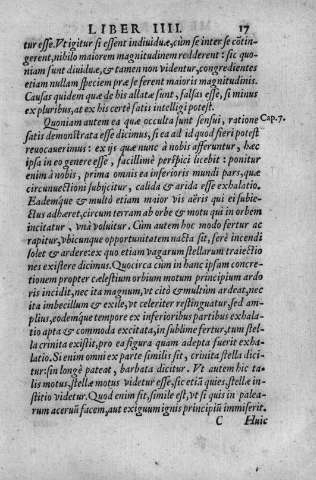 LIBER IIII. 17
tur esse. Vt igitur si essent indiuiduæ, cùm se inter se cōtin-
gerent, nihilo maiorem magnitudinem redderent: sic quo-
niam sunt diuiduæ, & tamen non videntur, congredientes
etiam nullam speciem præ se ferent maioris magnitudinis.
Causas quidem quæ de his allatæ sunt, falsas esse, si minus
ex pluribus, at ex his certè satis intelligi potest.
Quoniam autem ea quæ occulta sunt sensui, ratione Cap.7.
satis demonstrata esse dicimus, si ea ad id quod fieri potest
reuocauerimus: ex ijs quæ nunc à nobis afferuntur, hæc
ipsa in eo genere esse, facillimè perspici licebit: ponitur
enim à nobis, prima omnis ea inferioris mundi pars, quæ
circunuectioni subijcitur, calida & arida esse exhalatio.
Eadémque & multò etiam maior vis aëris qui ei subie-
ctus adhæret, circum terram ab orbe & motu qui in orbem
incitatur, vnà voluitur. Cùm autem hoc modo fertur ac
rapitur, vbicunque opportunitatem nacta sit, ferè incendi
solet & ardere: ex quo etiam vagarum stellarum traiectio
nes existere dicimus. Quocirca cùm in hanc ipsam concre-
tionem propter cælestium orbium motum principium ardo
ris incidit, nec ita magnum, vt citò & multùm ardeat, nec
ita imbecillum & exile, vt celeriter restinguatur, sed am
plius, eodémque tempore ex inferioribus partibus exhala-
tio apta & commoda excitata, in sublime fertur, tum stel-
la crinita existit, pro ea figura quam adepta fuerit exha-
latio. Si enim omni ex parte similis sit, crinita stella dici
tur: sin longè pateat, barbata dicitur. Vt autem hic ta-
lis motus, stellæ motus videtur esse, sic etiā quies, stellæ in-
stitio videtur. Quod enim fit, simile est, vt si quis in palea-
rum aceruū facem, aut exiguum ignis principiū immiserit.
C Huic